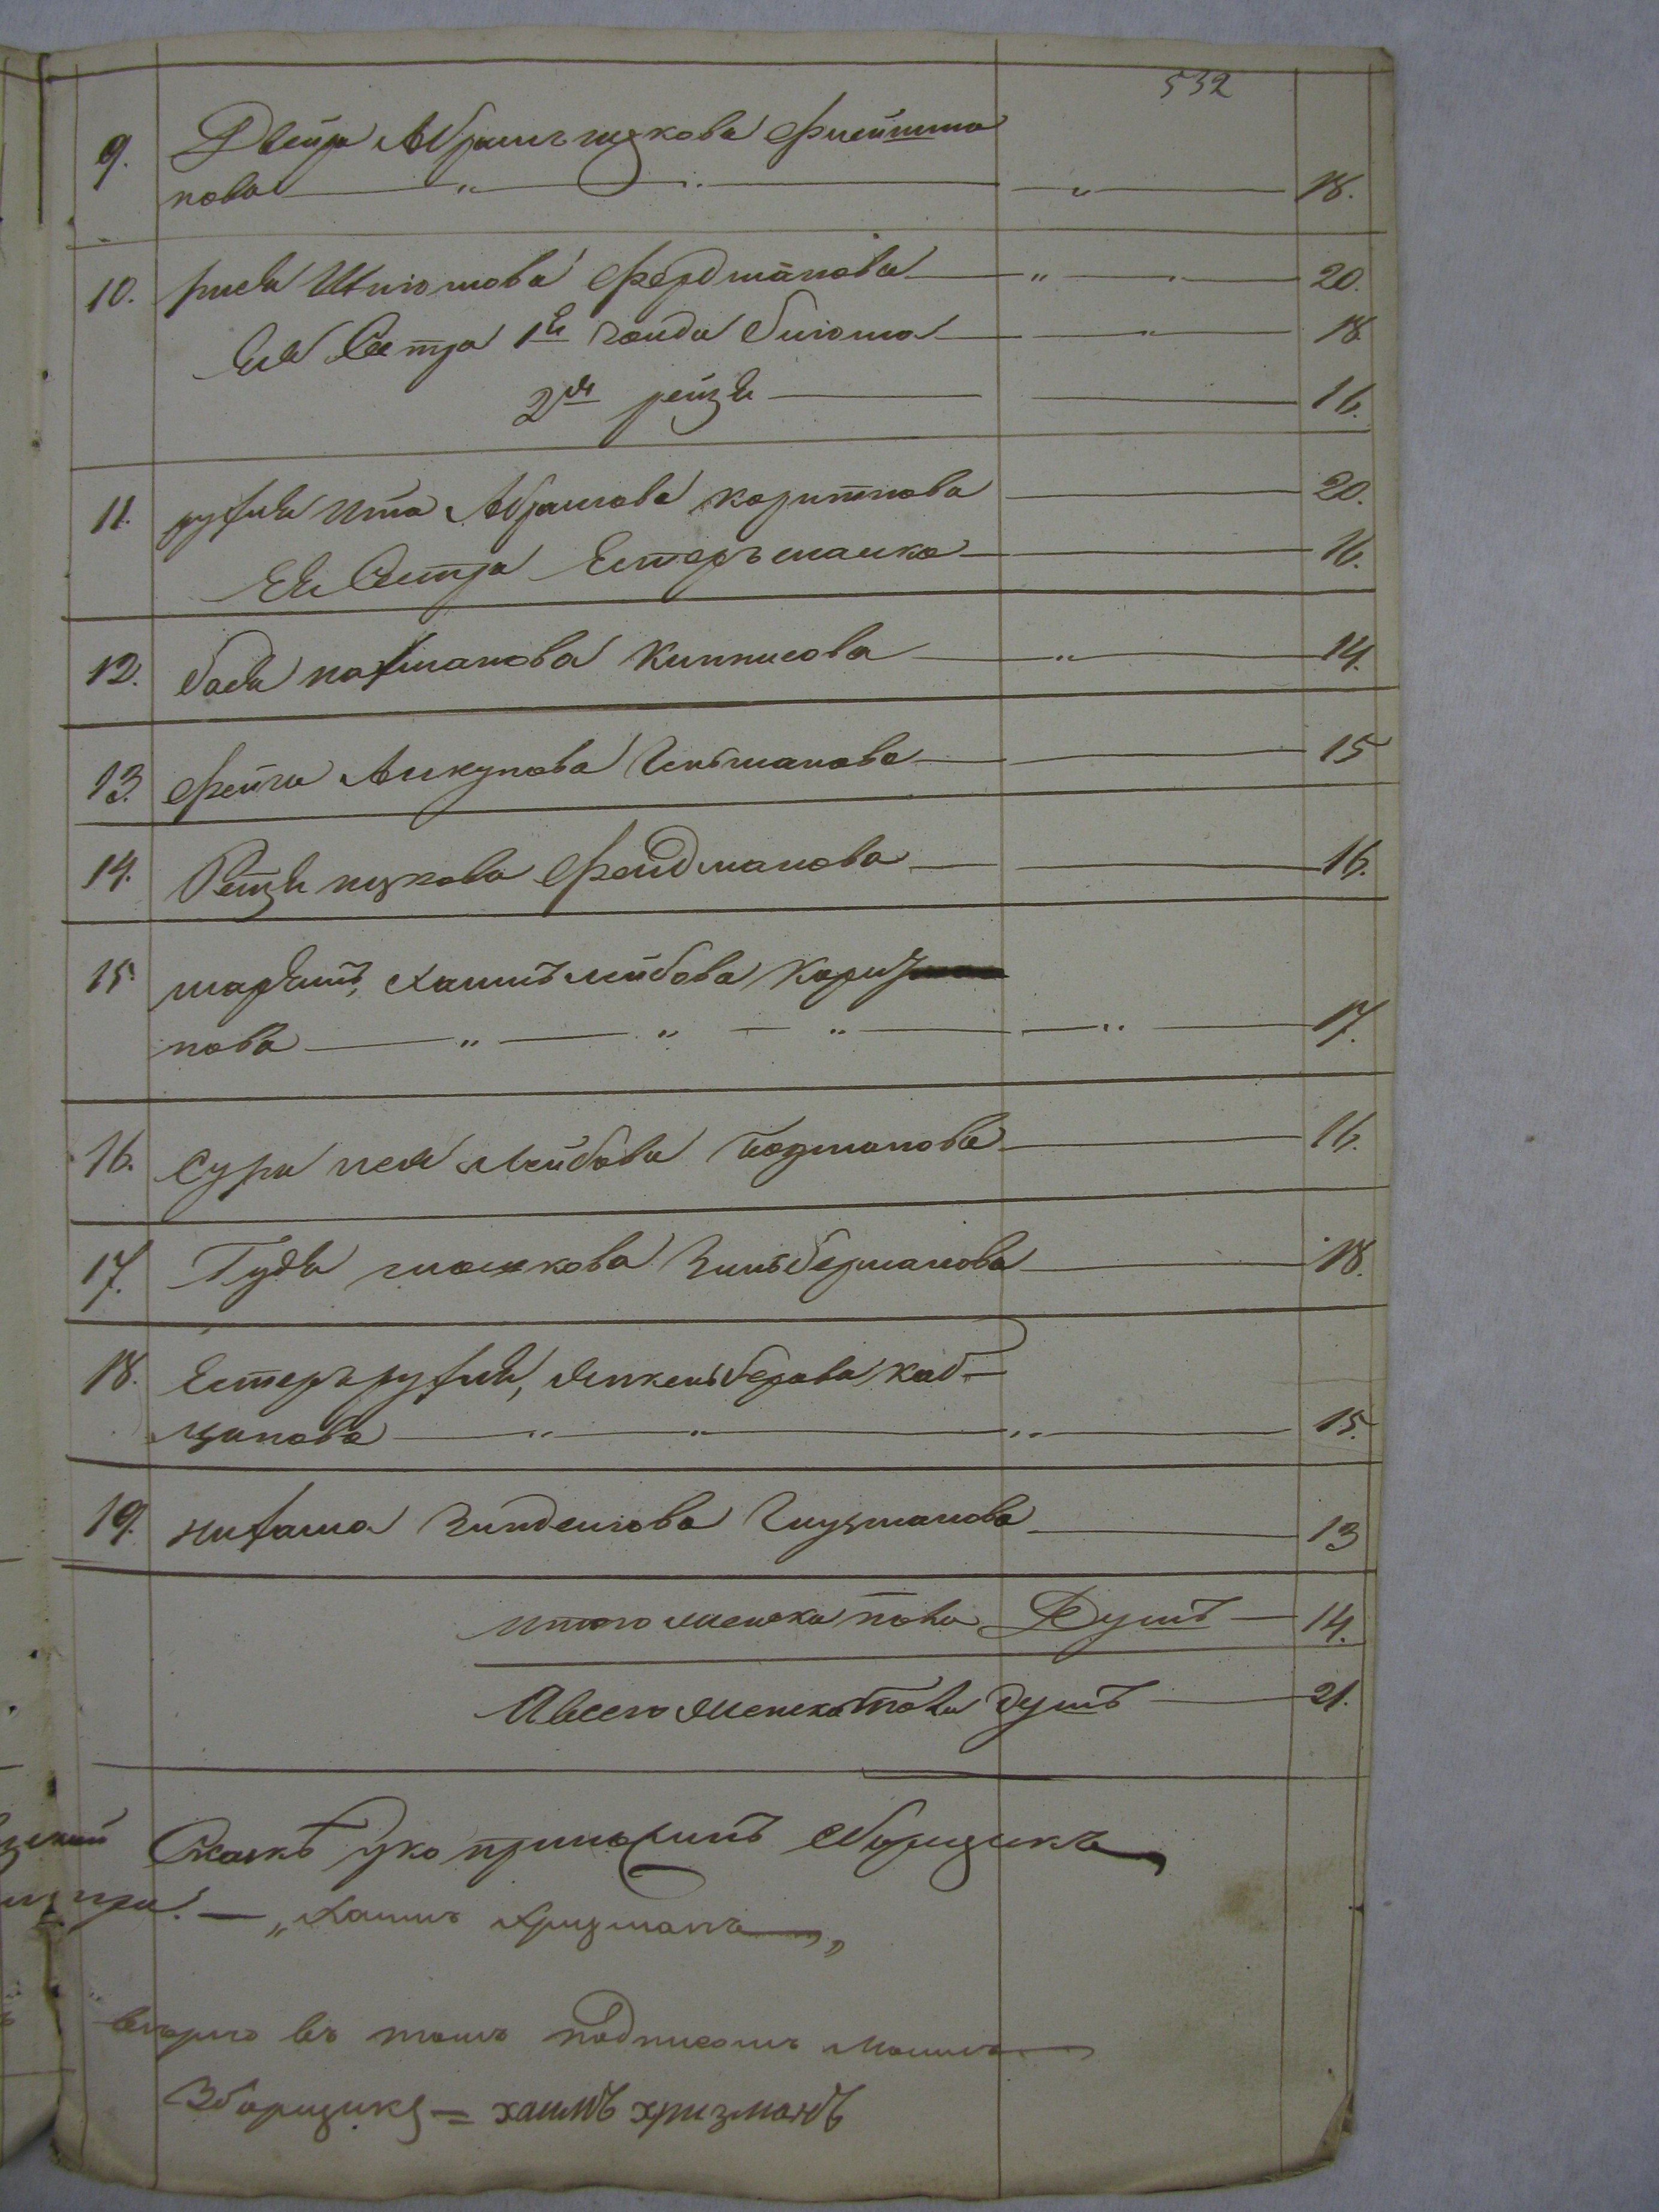 532
9. Двейра Абрамъ ицкова Флейшма
нова — „ — „ — „ — 18.
10. рися Шлiомова Фердманова — „ — 20.
Ея Сестра 1я Гольда блюма — „ — 18
2я рейзя — 16.
11. рухля Ита Абрамова коритнова — 20.
Ея Сестра Естеръ малка — 16.
12. бася нахманова Киннисова — „ — 14.
13. Фейга Анкунова Гельманова — 15
14. Рейзя ицкова Фельдманова — 16.
15. марьямъ, Хаимъ лейбова Кориз
нова — „ — „ — „ — „ — 17.
16. Сура лея Лейбова Бодманова — 16.
17. Гудя мошкова Зильбермановa — 18.
18. Естеръ рухля, Янкель берова каб-
цанова — „ — „ — „ — 15.
19. нихама Зинделiова Глузманова — 13
итого женска пола Душъ — 14.
А всего женска пола душъ — 21.
Сказкъ приносилъ сборщикъ
— „Хаимъ Хризманъ — „
въ томъ подписомъ
Зборщикъ = хаимъ хризманъ